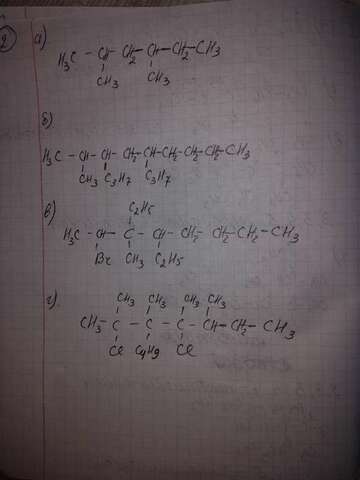 2 а)
H₃C - CH - CH₂ - CH - CH₂ - CH₃
CH₃ CH₃
б)
H₃C - CH - CH - CH₂ - CH - CH₂ - CH₂ - CH₂ - CH₃
CH₃ C₃H₇ C₃H₇
в)
C₂H₅
H₃C - CH - C - CH - CH₂ - CH₂ - CH₂ - CH₃
Br CH₃ C₂H₅
г)
CH₃ CH₃ CH₃ CH₃
CH₃ - C - C - C - CH - CH₂ - CH₃
Cl C₄H₉ Cl